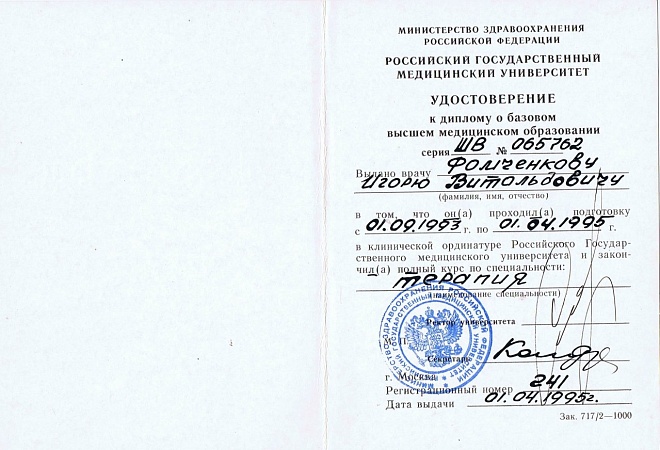 МИНИСТЕРСТВО ЗДРАВООХРАНЕНИЯ
РОССИЙСКОЙ ФЕДЕРАЦИИ
РОССИЙСКИЙ ГОСУДАРСТВЕННЫЙ
МЕДИЦИНСКИЙ УНИВЕРСИТЕТ
УДОСТОВЕРЕНИЕ
к диплому о базовом
высшем медицинском образовании
серия ШВ № 065762
Выдано врачу Фомченкову
Игорю Витольдовичу
(фамилия, имя, отчество)
в том, что он(а) проходил(а) подготовку
с 01.09.1993 г. по 01.04.1995 г.
в клинической ординатуре Российского Государ-
ственного медицинского университета и закон-
чил(а) полный курс по специальности:
терапия
(наименование специальности)
Ректор университета
М. П.
Секретарь
г. Москва
Регистрационный номер 241
Дата выдачи 01.04.1995г.
Зак. 717/2—1000